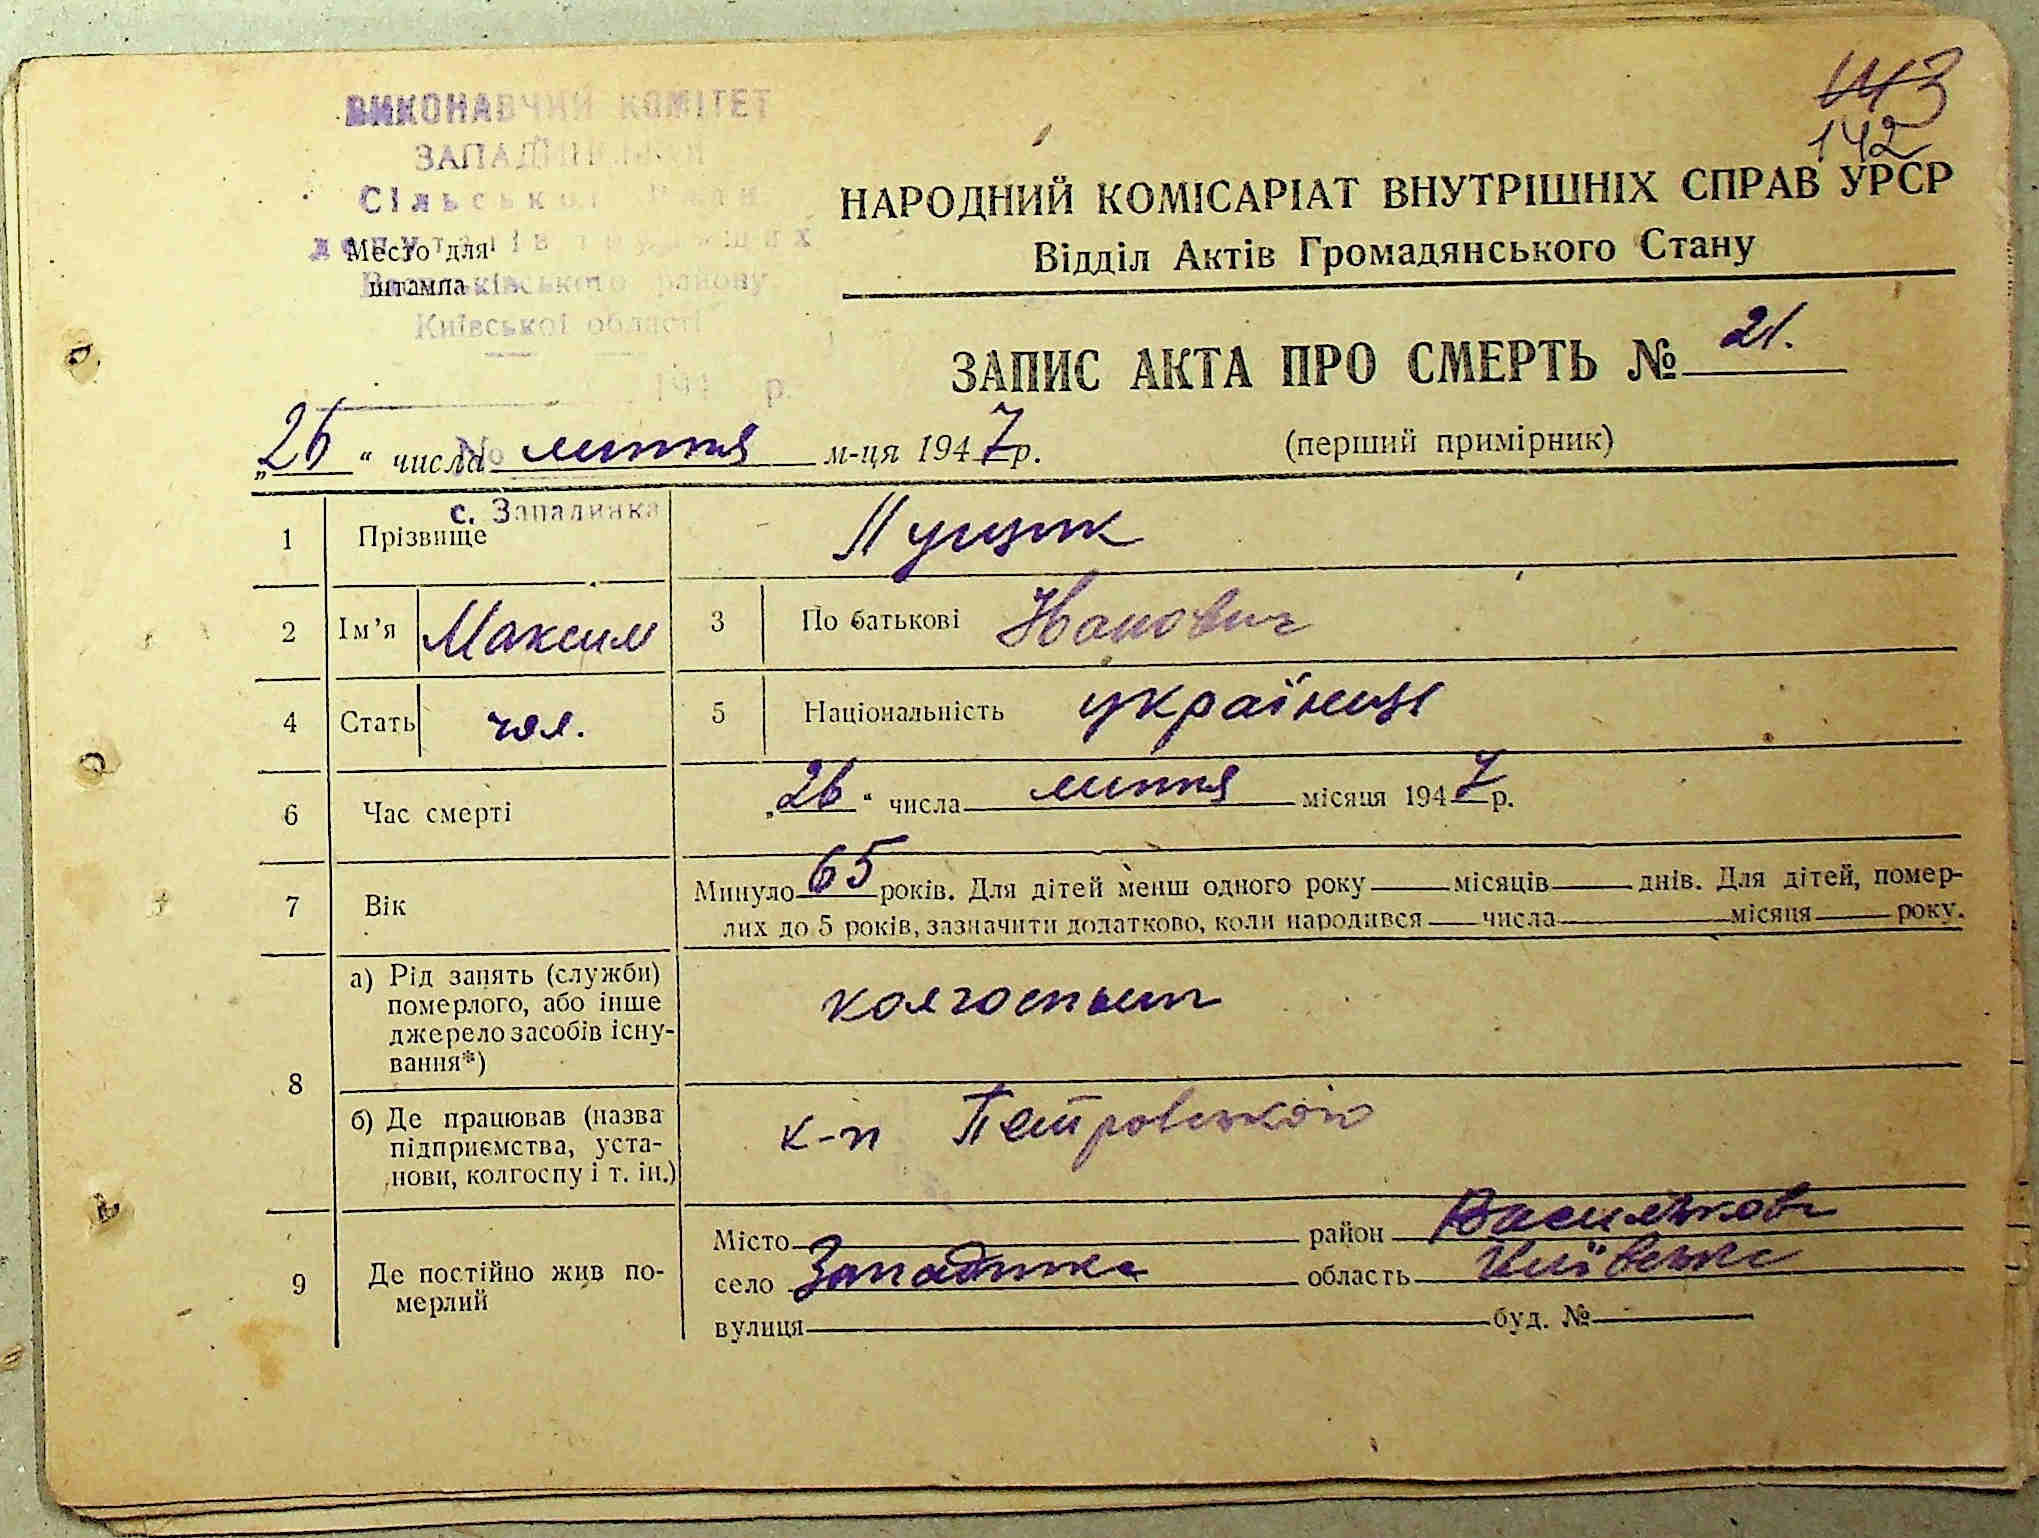 143
142
ВИКОНАВЧИЙ КОМІТЕТ
ЗАПАДИНСЬКОЇ
Сільської Ради
депутатів трудящих
Васильківського району
Київської області
194 р.
№
с. Западинка
Место для
штампа
НАРОДНИЙ КОМІСАРІАТ ВНУТРІШНІХ СПРАВ УРСР
Відділ Актів Громадянського Стану
ЗАПИС АКТА ПРО СМЕРТЬ № 21.
„26“ числа липня м-ця 1947 р.
(перший примірник)
1 Прізвище
2 Ім’я Максим 3 По батькові Іванович
4 Стать чол. 5 Національність українець
6 Час смерті „26“ числа липня місяця 1947 р.
7 Вік Минуло 65 років. Для дітей менш одного року місяців днів. Для дітей, помер-
лих до 5 років, зазначити додатково, коли народився числа місяця року.
8 а) Рід занять (служби)
померлого, або інше
джерело засобів існу-
вання*)
колгоспник
б) Де працював (назва
підприємства, уста-
нови, колгоспу і т. ін.)
к-п Петровського
9 Де постійно жив по-
мерлий
Місто район Васильков
село Западинка область Київська
вулиця буд. №